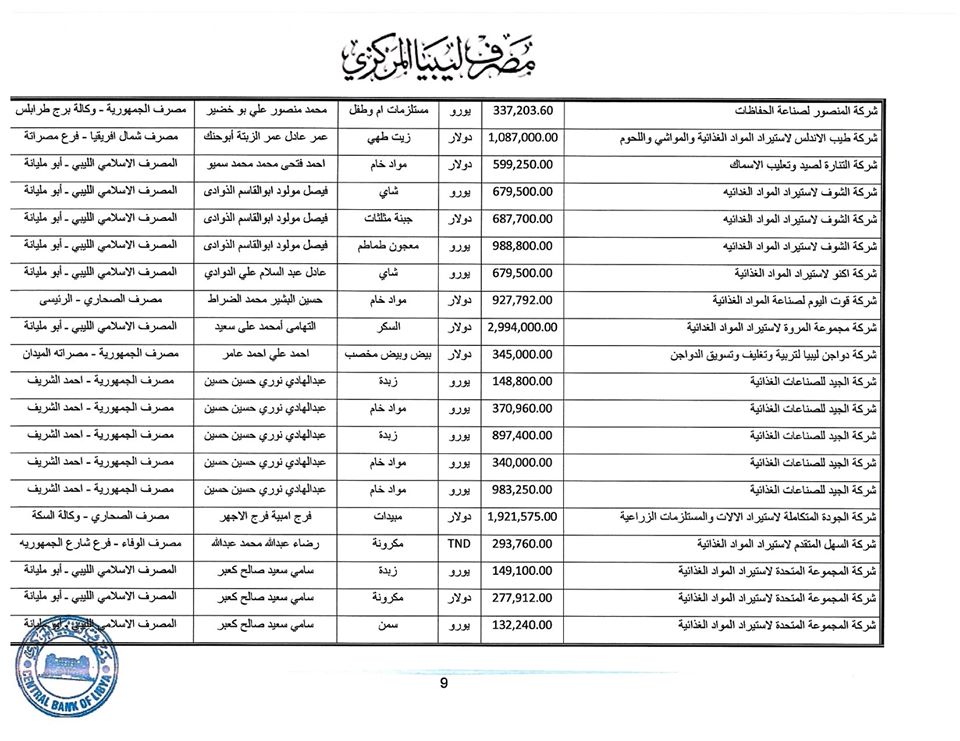 مصرف ليبيا المركزي
شركة المنصور لصناعة الحفاظات 337,203.60 يورو مستلزمات ام وطفل محمد منصور علي بو خضير مصرف الجمهورية - وكالة برج طرابلس
شركة طيب الاندلس لاستيراد المواد الغذائية والمواشي واللحوم 1,087,000.00 دولار زيت طهي عمر عادل عمر الزبتة أبوحنك مصرف شمال افريقيا - فرع مصراتة
شركة التنارة لصيد وتعليب الاسماك 599,250.00 دولار مواد خام احمد فتحى محمد محمد سميو المصرف الاسلامي الليبي - أبو مليانة
شركة الشوف لاستيراد المواد الغدائيه 679,500.00 يورو شاي فيصل مولود ابوالقاسم الذوادى المصرف الاسلامي الليبي - أبو مليانة
شركة الشوف لاستيراد المواد الغدائيه 687,700.00 دولار جبنة مثلثات فيصل مولود ابوالقاسم الذوادى المصرف الاسلامي الليبي - أبو مليانة
شركة الشوف لاستيراد المواد الغدائيه 988,800.00 يورو معجون طماطم فيصل مولود ابوالقاسم الذوادى المصرف الاسلامي الليبي - أبو مليانة
شركة اكنو لاستيراد المواد الغذائية 679,500.00 يورو شاي عادل عبد السلام علي الدوادي المصرف الاسلامي الليبي - أبو مليانة
شركة قوت اليوم لصناعة المواد الغذائية 927,792.00 دولار مواد خام حسين البشير محمد الضراط مصرف الصحاري - الرئيسى
شركة مجموعة المروة لاستيراد المواد الغدائية 2,994,000.00 دولار السكر التهامى أمحمد على سعيد المصرف الاسلامي الليبي - أبو مليانة
شركة دواجن ليبيا لتربية وتغليف وتسويق الدواجن 345,000.00 دولار بيض وبيض مخصب احمد علي احمد عامر مصرف الجمهورية - مصراته الميدان
شركة الجيد للصناعات الغذائية 148,800.00 يورو زبدة عبدالهادي نوري حسين حسين مصرف الجمهورية - احمد الشريف
شركة الجيد للصناعات الغذائية 370,960.00 يورو مواد خام عبدالهادي نوري حسين حسين مصرف الجمهورية - احمد الشريف
شركة الجيد للصناعات الغذائية 897,400.00 يورو زبدة عبدالهادي نوري حسين حسين مصرف الجمهورية - احمد الشريف
شركة الجيد للصناعات الغذائية 340,000.00 يورو مواد خام عبدالهادي نوري حسين حسين مصرف الجمهورية - احمد الشريف
شركة الجيد للصناعات الغذائية 983,250.00 يورو مواد خام عبدالهادي نوري حسين حسين مصرف الجمهورية - احمد الشريف
شركة الجودة المتكاملة لاستيراد الالات والمستلزمات الزراعية 1,921,575.00 دولار مبيدات فرج امبية فرج الاجهر مصرف الصحاري - وكالة السكة
شركة السهل المتقدم لاستيراد المواد الغذائية 293,760.00 TND مكرونة رضاء عبدالله محمد عبدالله مصرف الوفاء - فرع شارع الجمهوريه
شركة المجموعة المتحدة لاستيراد المواد الغذائية 149,100.00 يورو زبدة سامي سعيد صالح كعبر المصرف الاسلامي الليبي - أبو مليانة
شركة المجموعة المتحدة لاستيراد المواد الغذائية 277,912.00 دولار مكرونة سامي سعيد صالح كعبر المصرف الاسلامي الليبي - أبو مليانة
شركة المجموعة المتحدة لاستيراد المواد الغذائية 132,240.00 يورو سمن سامي سعيد صالح كعبر المصرف الاسلامي الليبي - أبو مليانة
مصرف ليبيا المركزي
CENTRAL BANK OF LIBYA
9